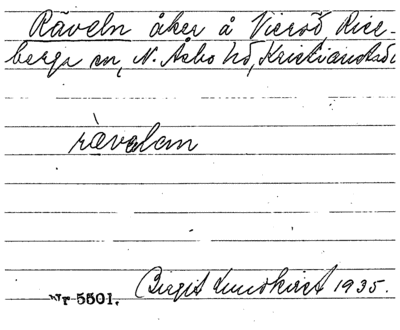 Räveln åker å Vieröd, Rise-
berga sn, N. Åsbo hd, Kristianstads
rävelan
Nr 5501. Birgit Lundkvist 1935.